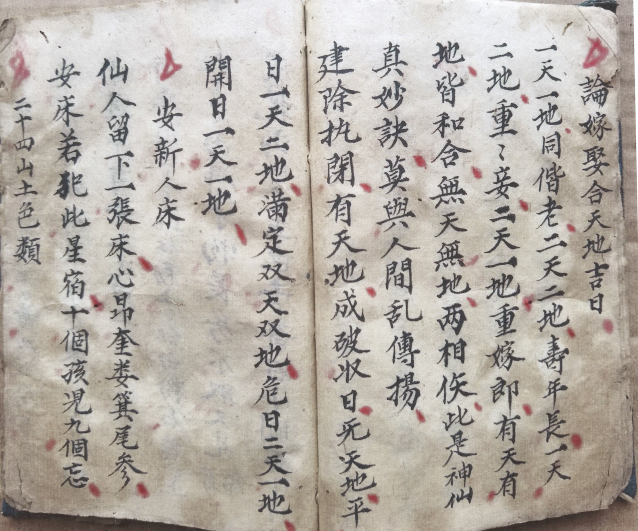 論嫁娶合天地吉日
一天一地同偕老二天二地壽年長一天
二地重〻妾二天一地重嫁郎有天有
地皆和合無天無地两相佚此是神仙
真妙訣莫與人間乱傳揚
建除执閉有天地成破收日无天地平
日一天二地滿定双天双地危日二天一地
開日一天一地
安新人床
仙人留下一張床心昻奎娄箕尾参
安床若犯此星宿十個孩児九個忘
二十四山土色類